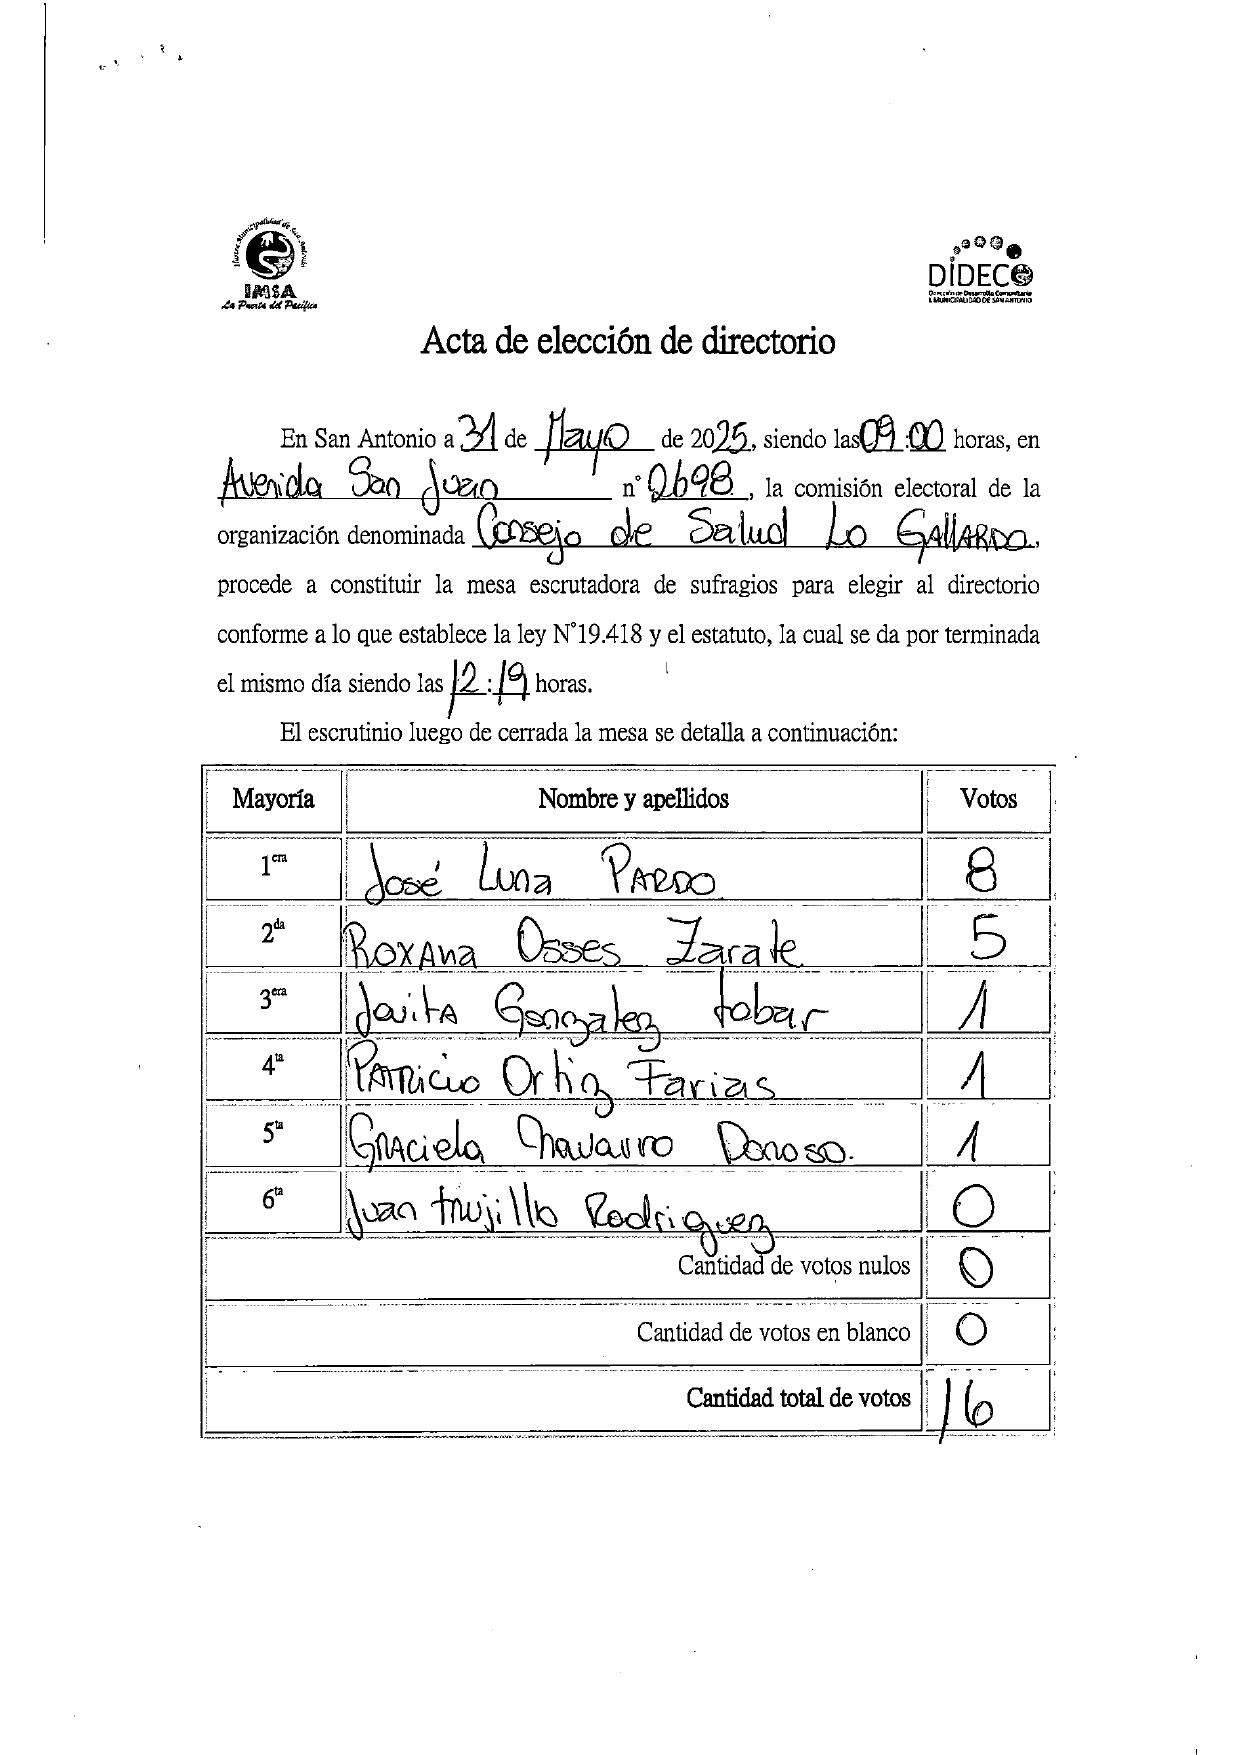 Ilustre Municipalidad de San Antonio
IMSA
La Puerta del Pacífico
DIDECO
Dirección de Desarrollo Comunitario
I. MUNICIPALIDAD DE SAN ANTONIO
Acta de elección de directorio
En San Antonio a 31 de Mayo de 2025, siendo las 09:00 horas, en
Avenida San Juan n° 2698, la comisión electoral de la
organización denominada Consejo de Salud Lo GALLARDO,
procede a constituir la mesa escrutadora de sufragios para elegir al directorio
conforme a lo que establece la ley N°19.418 y el estatuto, la cual se da por terminada
el mismo día siendo las 12:19 horas.
El escrutinio luego de cerrada la mesa se detalla a continuación:
Mayoría Nombre y apellidos Votos
1era José Luna PARDO 8
2da ROXAna Osses Zarate 5
3era Gonzalez tobar 1
4ta PAtRicio Ortiz Farias 1
5ta GRACiela Donoso. 1
6ta Juan trujillo Rodriguez 0
Cantidad de votos nulos 0
Cantidad de votos en blanco 0
Cantidad total de votos 16